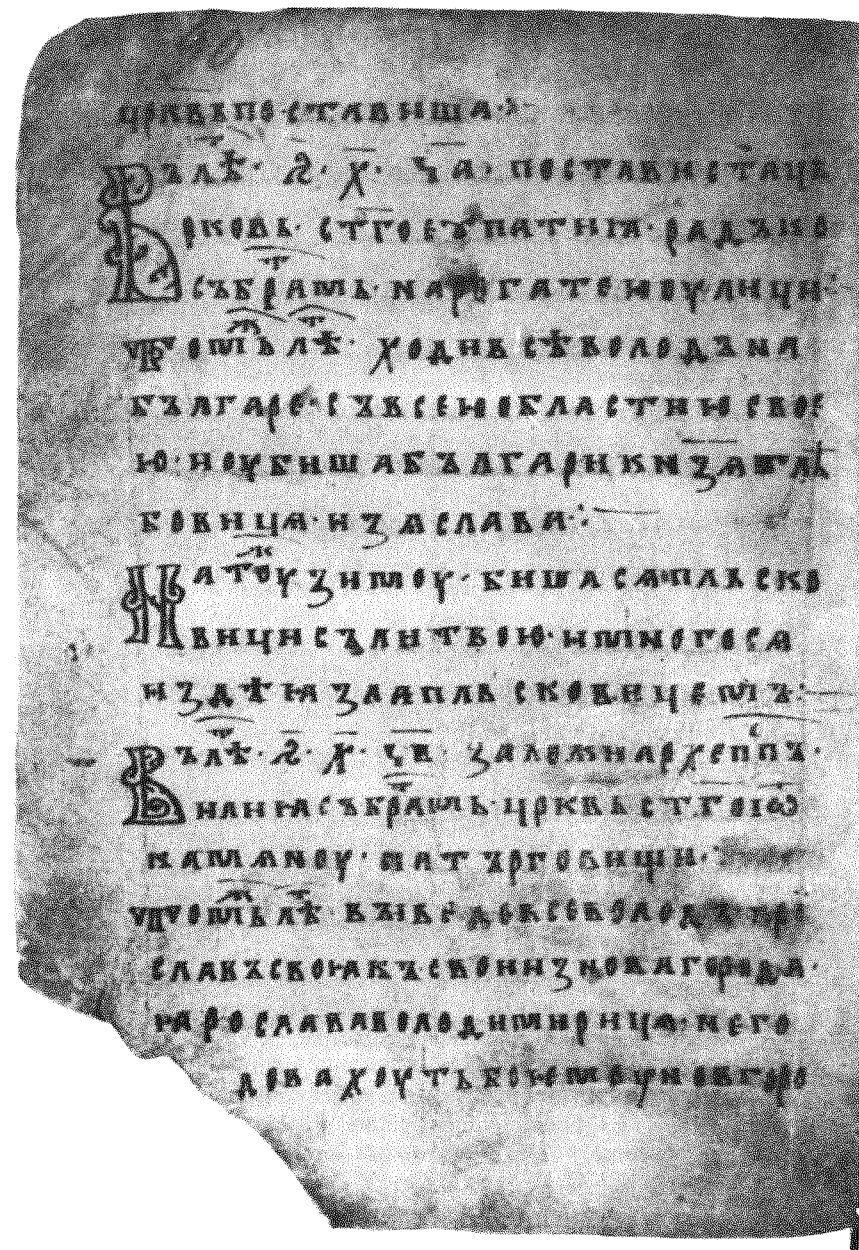 цркъвь поставиша·:·
Въ лѣт҇· ҂s҃· х҃· ч҃а· постави ст҃ѧ ць
рковь· ст҃го еѵпатиꙗ· радъко
съ брат҇мь· на рогатеи оулици·:·
Въ томь лѣт҇· ходи вьсѣволодъ на
българе· съ вьсею областию свое
ю· и оубиша българи кн҃зѧ ꙗглѣ
бовицѧ· изѧслава·:·
На тоу ж҇ зимоу· бишасѧ пльско
вици съ литвою· и много сѧ
издѣꙗ зла пльсковицемъ·:·
Въ лѣт҇· ҂s҃· х҃· ч҃в· заложи архепс҃пъ·
илиꙗ съ брат҇мь· црквь ст҃го іѡ
на на манѹ· на търговищи·
Въ томь лѣт҇· въiведе вьсеволодъ ꙗро
славъ своꙗкъ свои из новагорода·
ꙗрослава володимирицѧ· не го
довахоуть бо ѥмоу новъгоро